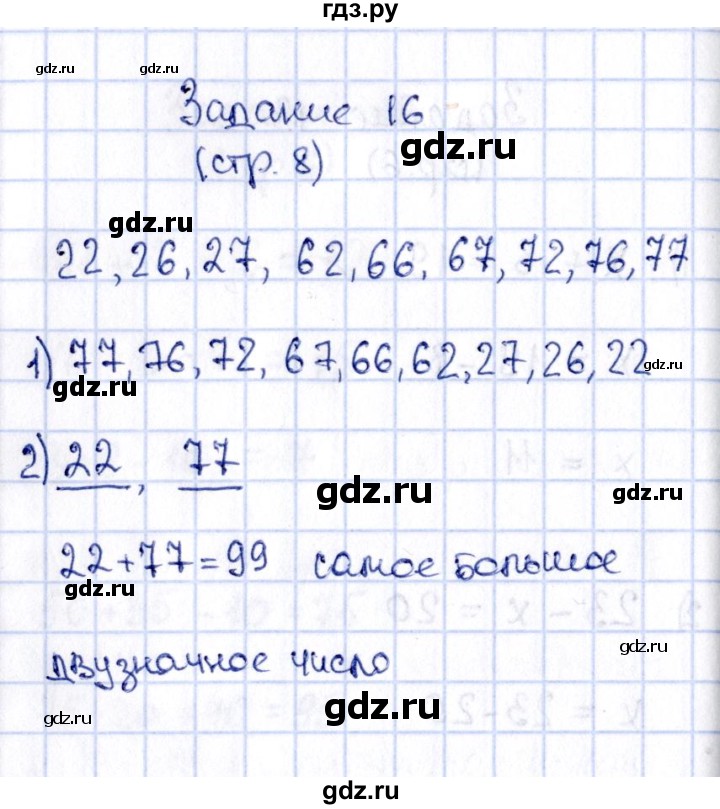 гдз.ру
gdz.ru gdz.ru gdz.ru
Задание 16
gdz.ru
(стр. 8)
gdz.ru
22, 26, 27, 62, 66, 67, 72, 76, 77
1) 77, 76, 72, 67, 66, 62, 27, 26, 22
gdz.ru gdz.ru
2) 22, 77
gdz.ru gdz.ru
22+77=99 самое большое
gdz.ru
gdz.ru
двузначное число
gdz.ru gdz.ru
gdz.ru